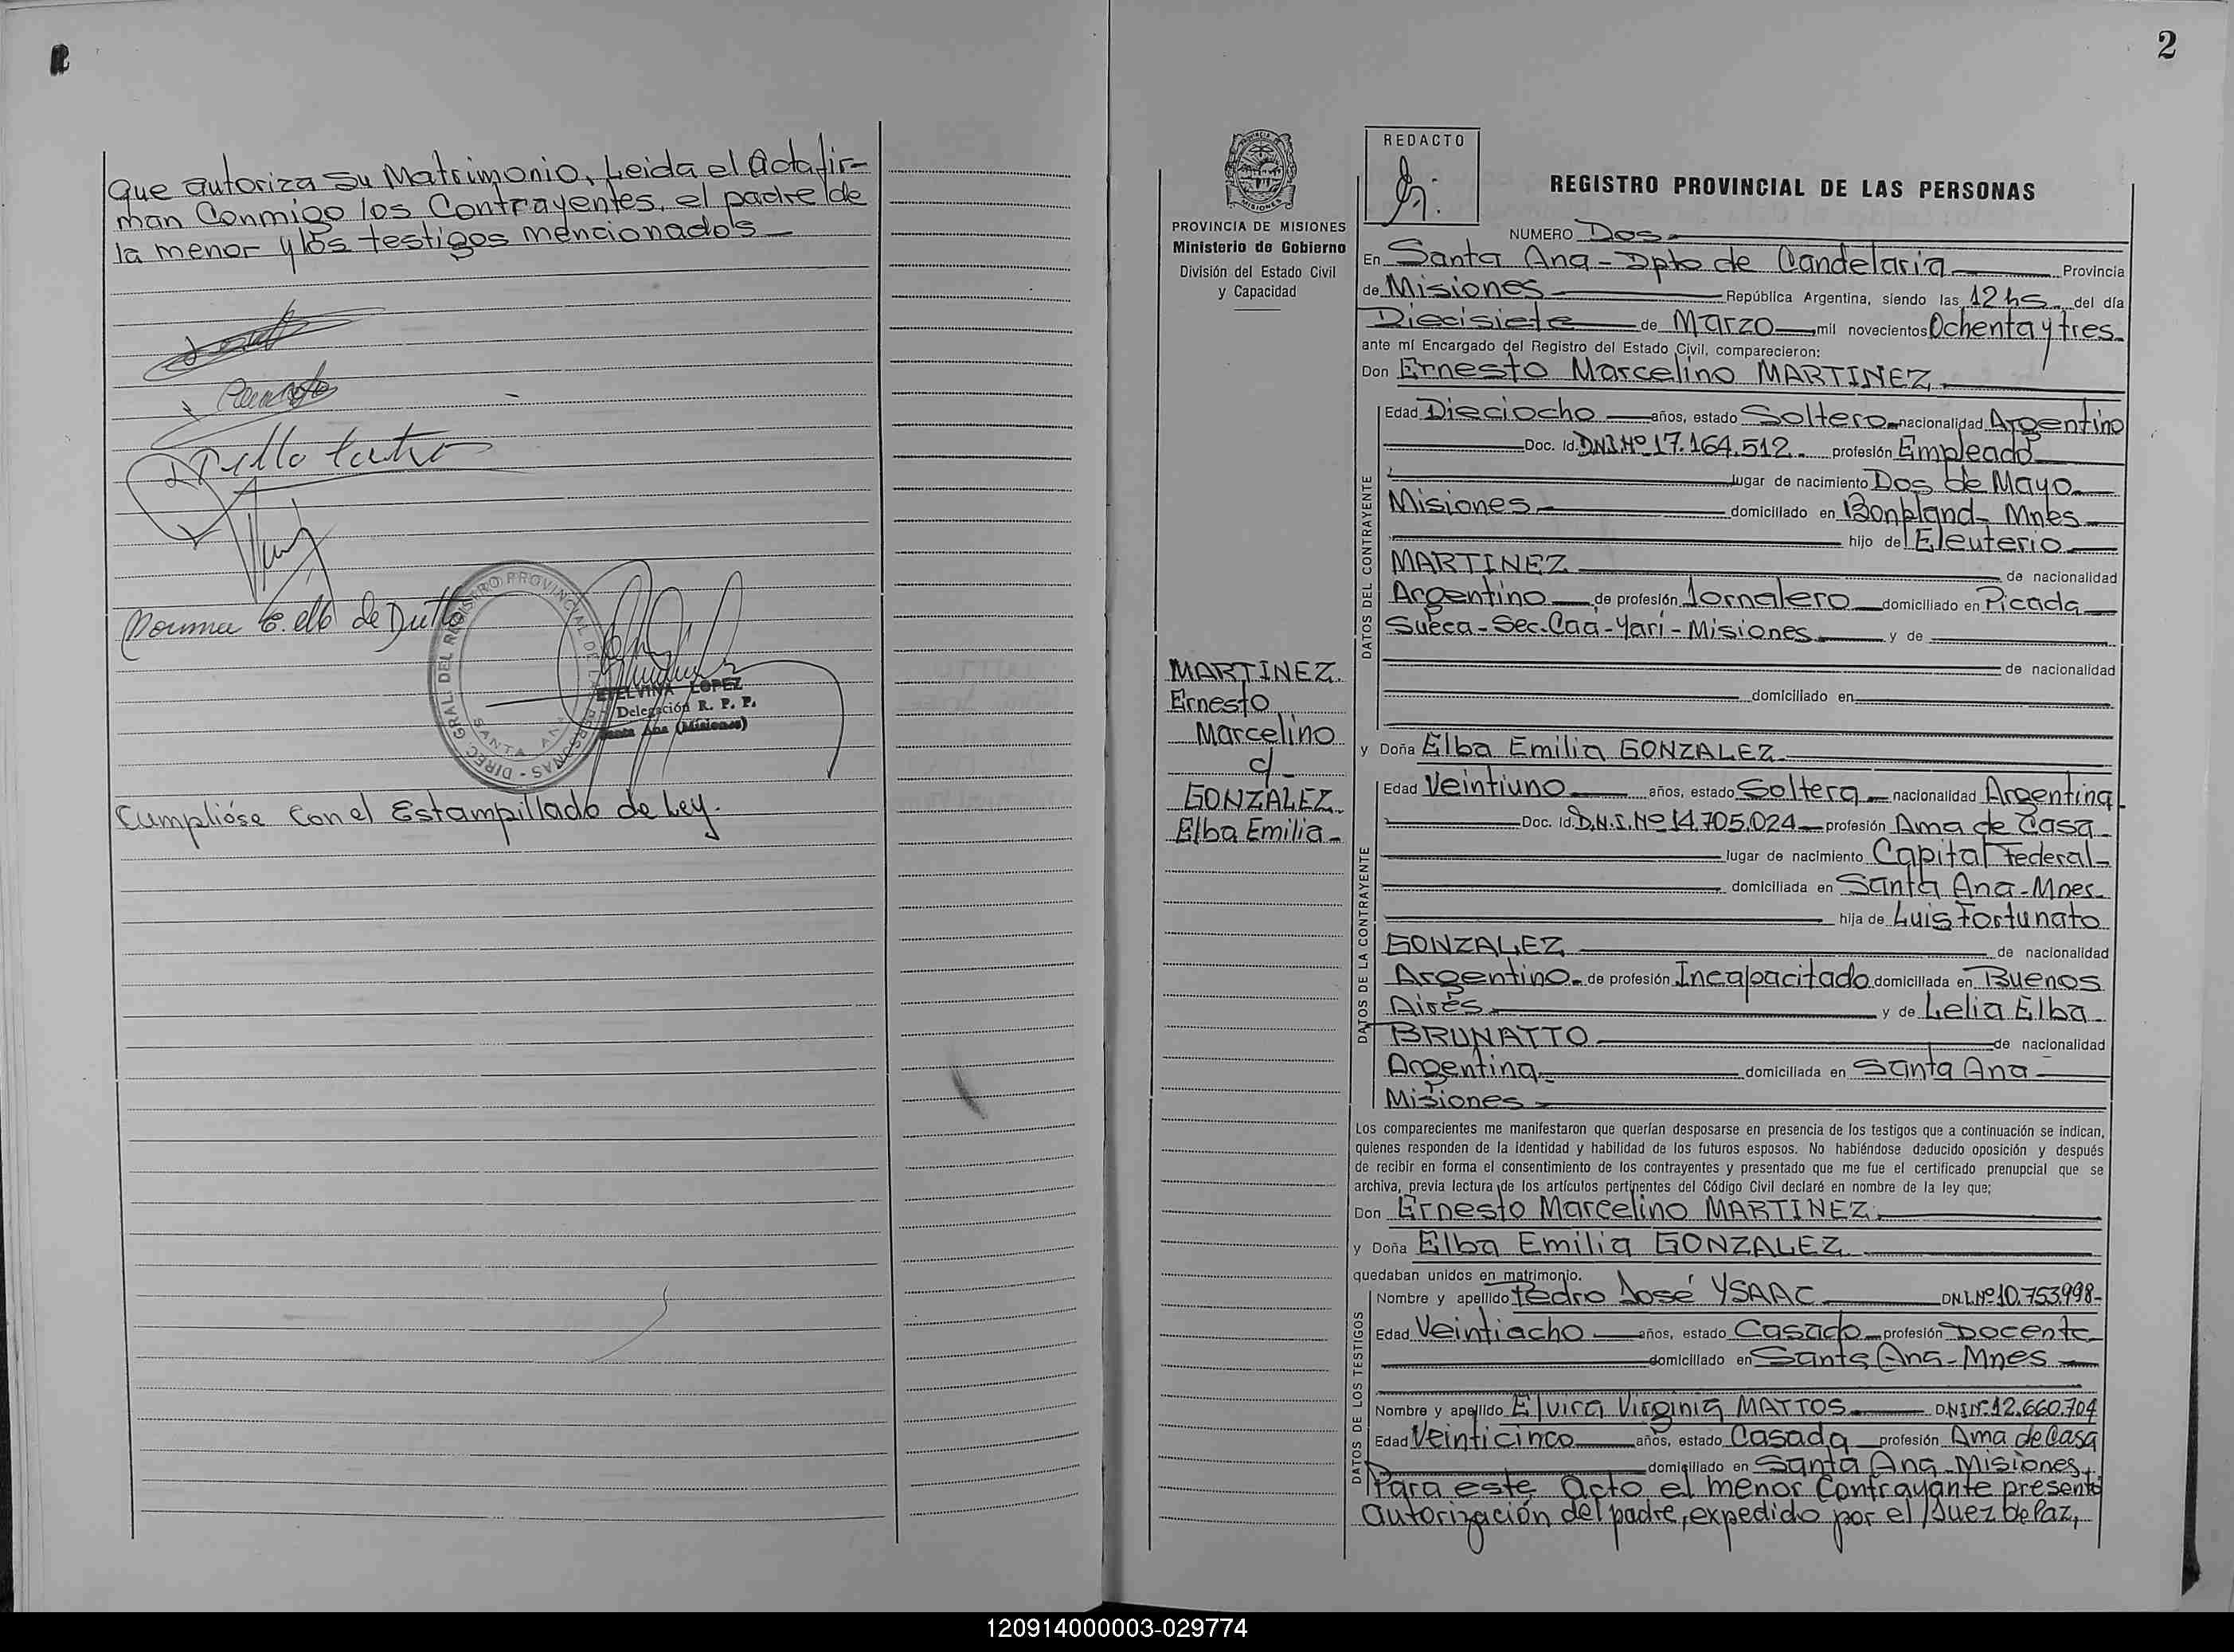 que autoriza su Matrimonio, Leida el Acta fir-
man Conmigo los Contrayentes, el padre de
la menor y los testigos mencionados
DIREC. GRAL. DEL REGISTRO PROVINCIAL DE LAS PERSONAS - SANTA ANA
ETELVINA LOPEZ
Delegación R. P. P.
Santa Ana (Misiones)
Cumplióse con el Estampillado de Ley.
2
PROVINCIA DE MISIONES
Ministerio de Gobierno
División del Estado Civil
y Capacidad
MARTINEZ
Ernesto
Marcelino
c/
GONZALEZ
Elba Emilia
REDACTO
REGISTRO PROVINCIAL DE LAS PERSONAS
NUMERO Dos
En Santa Ana - Dpto de Candelaria Provincia
de Misiones República Argentina, siendo las 12 hs del día
Diecisiete de Marzo mil novecientos Ochenta y tres
ante mí Encargado del Registro del Estado Civil, comparecieron:
Don Ernesto Marcelino MARTINEZ
DATOS DEL CONTRAYENTE
Edad Dieciocho años, estado Soltero nacionalidad Argentino
Doc. Id. DNI. Nº 17.164.512 profesión Empleado
lugar de nacimiento Dos de Mayo
Misiones domiciliado en Bonpland - Mnes
hijo de Eleuterio
MARTINEZ de nacionalidad
Argentino de profesión Jornalero domiciliado en Picada
Sueca - Sec. Caa-Yari - Misiones y de
de nacionalidad
domiciliado en
y Doña Elba Emilia GONZALEZ
DATOS DE LA CONTRAYENTE
Edad Veintiuno años, estado Soltera nacionalidad Argentina
Doc. Id. D.N.I. Nº 14.705.024 profesión Ama de Casa
lugar de nacimiento Capital Federal
domiciliada en Santa Ana - Mnes
hija de Luis Fortunato
GONZALEZ de nacionalidad
Argentino de profesión Incapacitado domiciliada en Buenos
Aires y de Lelia Elba
BRUNATTO de nacionalidad
Argentina domiciliada en Santa Ana
Misiones
Los comparecientes me manifestaron que querían desposarse en presencia de los testigos que a continuación se indican,
quienes responden de la identidad y habilidad de los futuros esposos. No habiéndose deducido oposición y después
de recibir en forma el consentimiento de los contrayentes y presentado que me fue el certificado prenupcial que se
archiva, previa lectura de los artículos pertinentes del Código Civil declaré en nombre de la ley que;
Don Ernesto Marcelino MARTINEZ
y Doña Elba Emilia GONZALEZ
quedaban unidos en matrimonio.
DATOS DE LOS TESTIGOS
Nombre y apellido Pedro José YSAAC DNI. Nº 10.753.998
Edad Veintiocho años, estado Casado profesión Docente
domiciliado en Santa Ana - Mnes
Nombre y apellido Elvira Virginia MATTOS DNI Nº 12.660.704
Edad Veinticinco años, estado Casada profesión Ama de Casa
domiciliado en Santa Ana - Misiones
Para este Acto el menor Contrayante presentó
autorización del padre, expedido por el Juez de Paz,
120914000003-029774